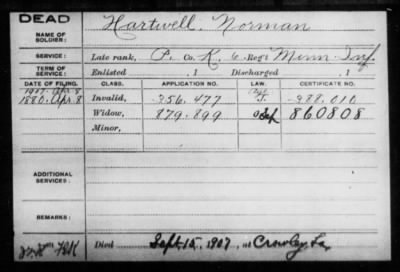 DEAD
NAME OF SOLDIER: Hartwell, Norman
SERVICE: Late rank, P. Co. K, 6 Reg't Minn. Inf.
TERM OF SERVICE: Enlisted , 1 Discharged , 1
DATE OF FILING. CLASS. APPLICATION NO. LAW. CERTIFICATE NO.
1880. Apr. 8 Invalid, 356,477 388,010
Widow, 879,899 860808
Minor,
ADDITIONAL SERVICES:
REMARKS:
Died Sept. 15, 1907, at Crowley, La.